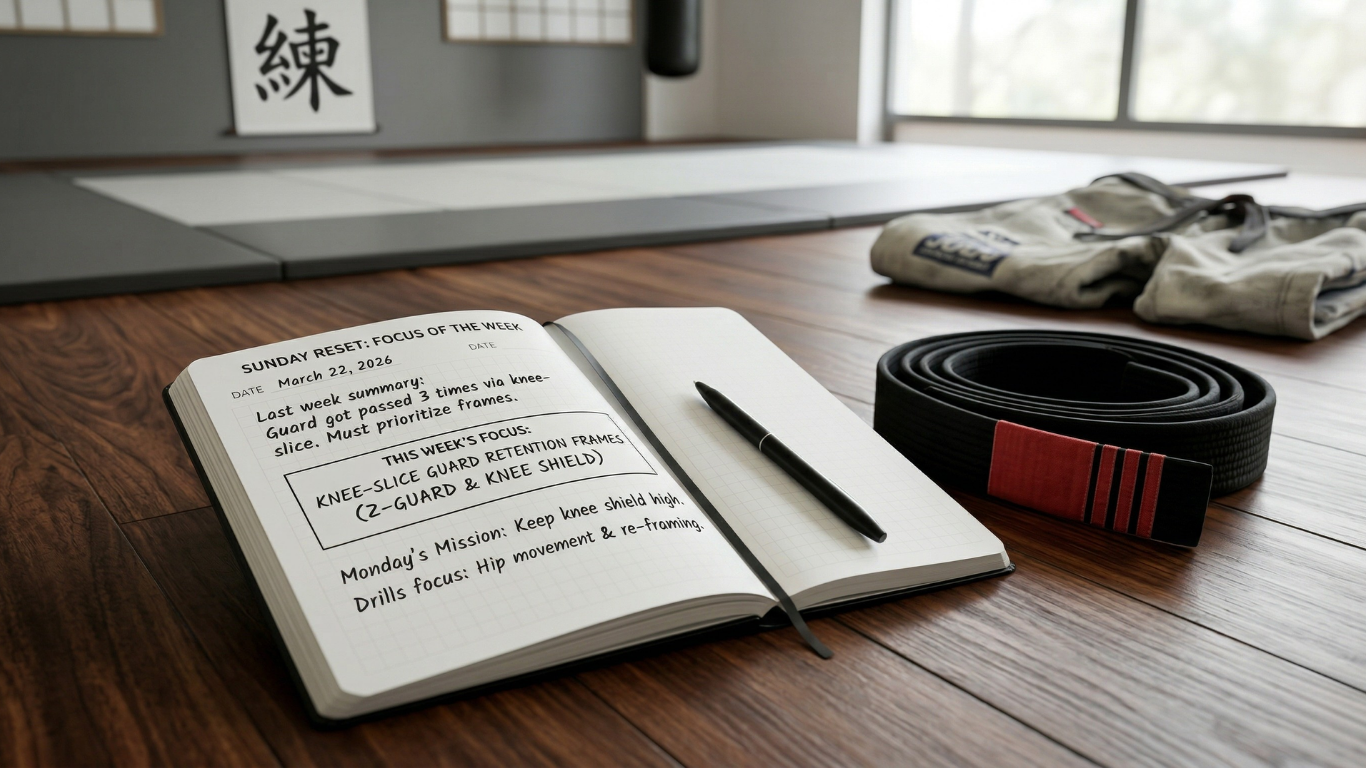 練
SUNDAY RESET: FOCUS OF THE WEEK
DATE March 22, 2026 DATE
Last week summary:
Guard got passed 3 times via knee-
slice. Must prioritize frames.
THIS WEEK'S FOCUS:
KNEE-SLICE GUARD RETENTION FRAMES
(Z-GUARD & KNEE SHIELD)
Monday's Mission: Keep knee shield high.
Drills focus: Hip movement & re-framing.